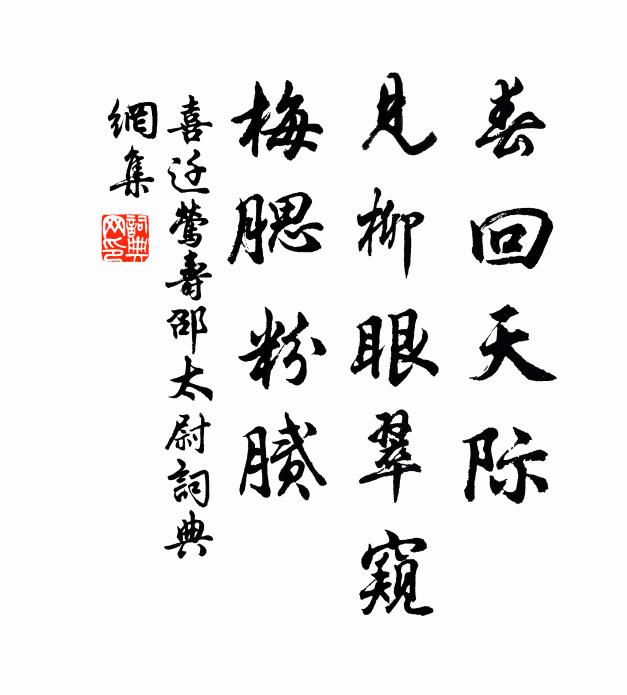 春回天际
見柳眼翠窺
梅腮粉膩
喜迁莺壽邵太尉詞典
網集
詞典
网印